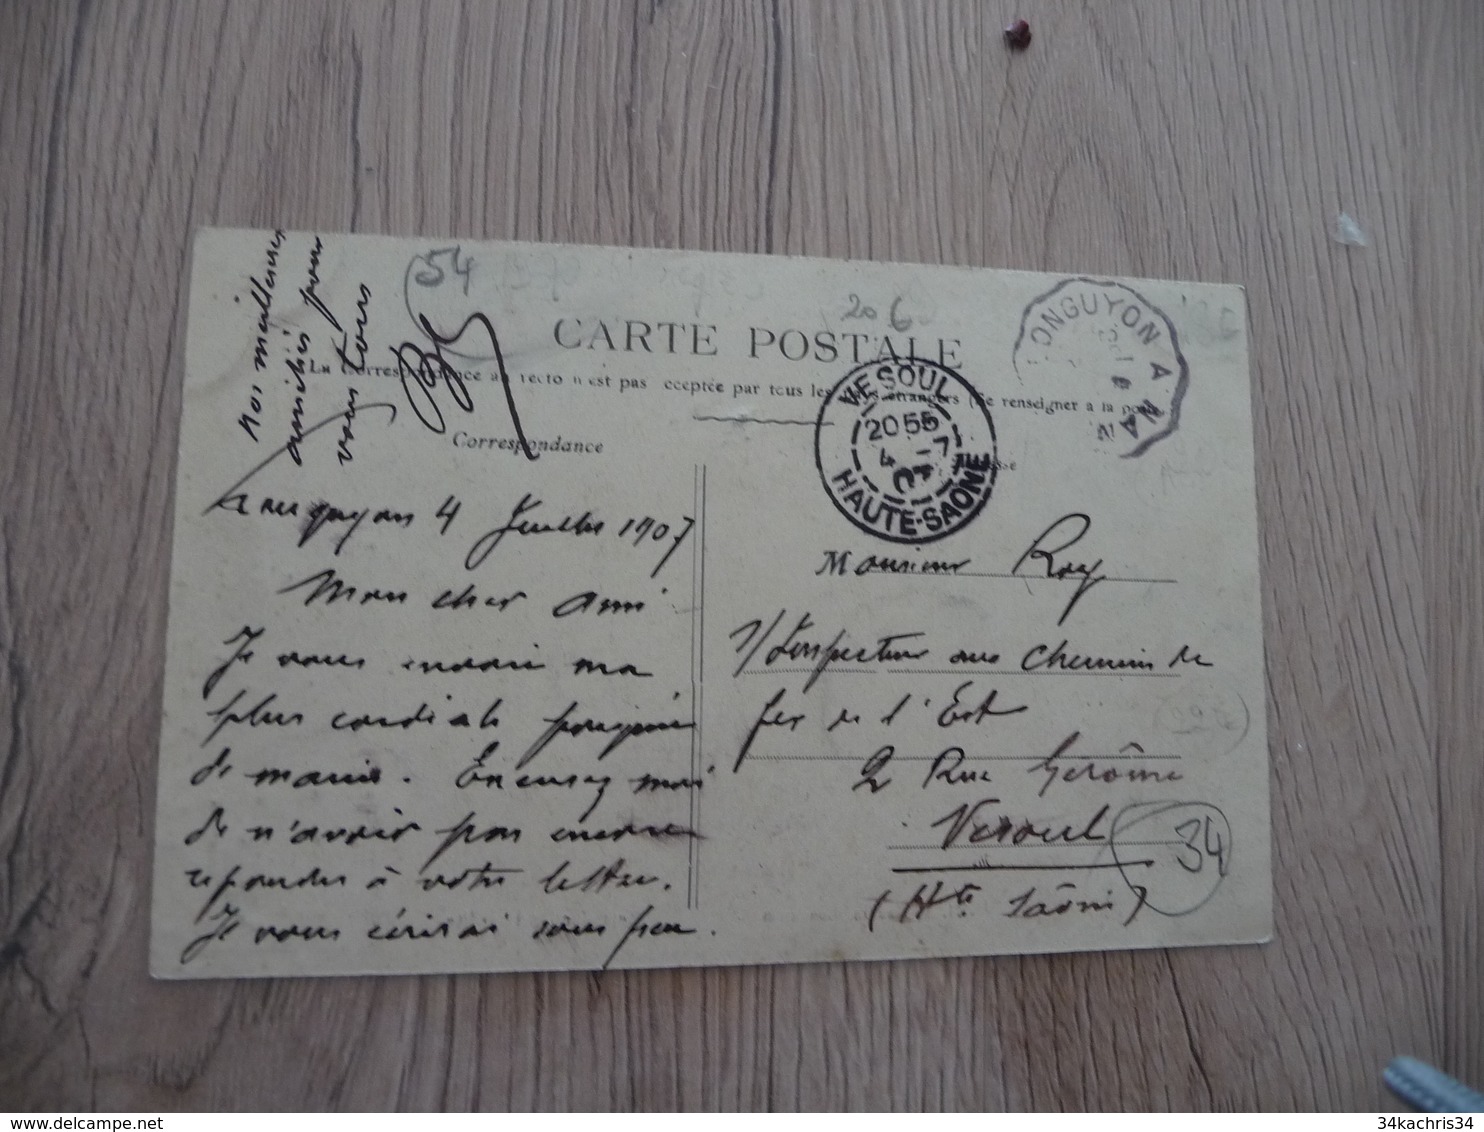 Nos meilleures
amitiés pour
vous tous
54
206
CARTE POSTALE
La Correspondance au recto n'est pas acceptée par tous les pays étrangers (Se renseigner à la poste)
Correspondance
VESOUL
2055
4 -7
07
HAUTE-SAONE
LONGUYON A NA
Longuyon 4 Juillet 1907
Mon cher Ami
Je vous envoie ma
plus cordiale poignée
de main. Excusez moi
de n'avoir pas encore
répondu à votre lettre.
Je vous écrirai sous peu.
Monsieur Roy
s/Inspecteur aux Chemin de
fer de l'Est
2 Rue Gerôme
Vesoul
(Hte Saône)
34
delcampe.net
34kachris34